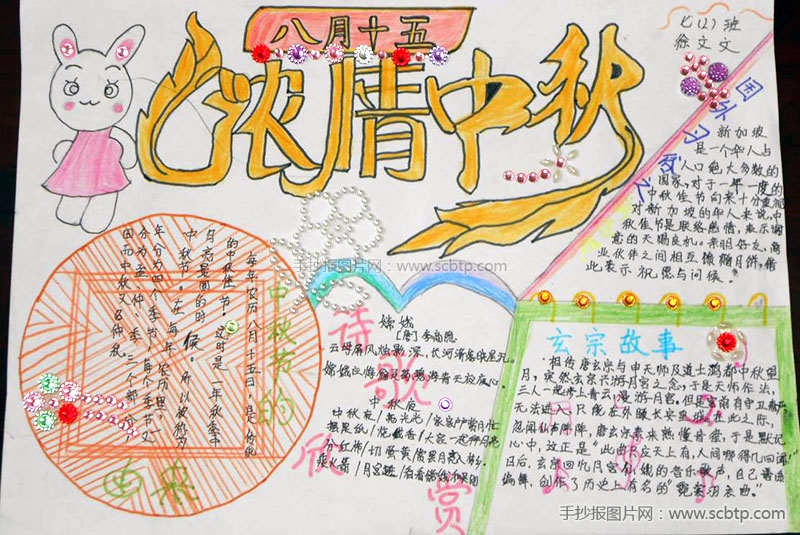 八月十五
浓情中秋
七(2)班
徐文文
国外习俗之
新加坡
新加坡
是一个华人占
人口绝大多数的
国家,对于一年一度的
中秋佳节向来十分重视
对新加坡的年人来说,中
秋佳节是联络感情,表示谢
意的天赐良机。亲朋好友、商
业伙伴之间相互馈赠月饼,借
此表示祝愿与问候。
手抄报图片网:www.scbtp.com
中秋节的
由来
每年农历八月十五日,是传统
的中秋佳节。这时是一年秋季中
月亮最圆的时候。所以被称为
中秋节。在每年农历里,一
年分为四个季节,每个季节又
分为孟、仲、季三个部分,
因而中秋又名仲秋。
诗歌欣赏
嫦娥
[唐]李商隐
云母屏风烛影深,长河渐落晓星沉。
嫦娥应悔偷灵药,碧海青天夜夜心
中秋夜
中秋夜/亮光光/家家户户赏月忙
摆果饼/烧截香/大家一起拜月亮
分红柿/切蛋黄/赏果月亮
乘火箭/月宫逛/看看嫦娥和吴刚
玄宗故事
相传唐玄宗与申天师及道士鸿都中秋望
月,突然玄宗兴游月宫之念,于是天师作法,
三人一起步上青云,漫游月宫。但是宫前有守卫森严,
无法进入,只能在外瞰长安皇城。在此之际,
忽闻仙声阵阵,唐玄宗素来熟懂音律,于是默记
心中,这正是“此曲只应天上有,人间哪得几回闻!”
日后,玄宗回忆月宫仙娥的音乐歌声,自己谱曲
编舞,创作了历史上有名的“霓裳羽衣曲。”
手抄报图片网:www.scbtp.com